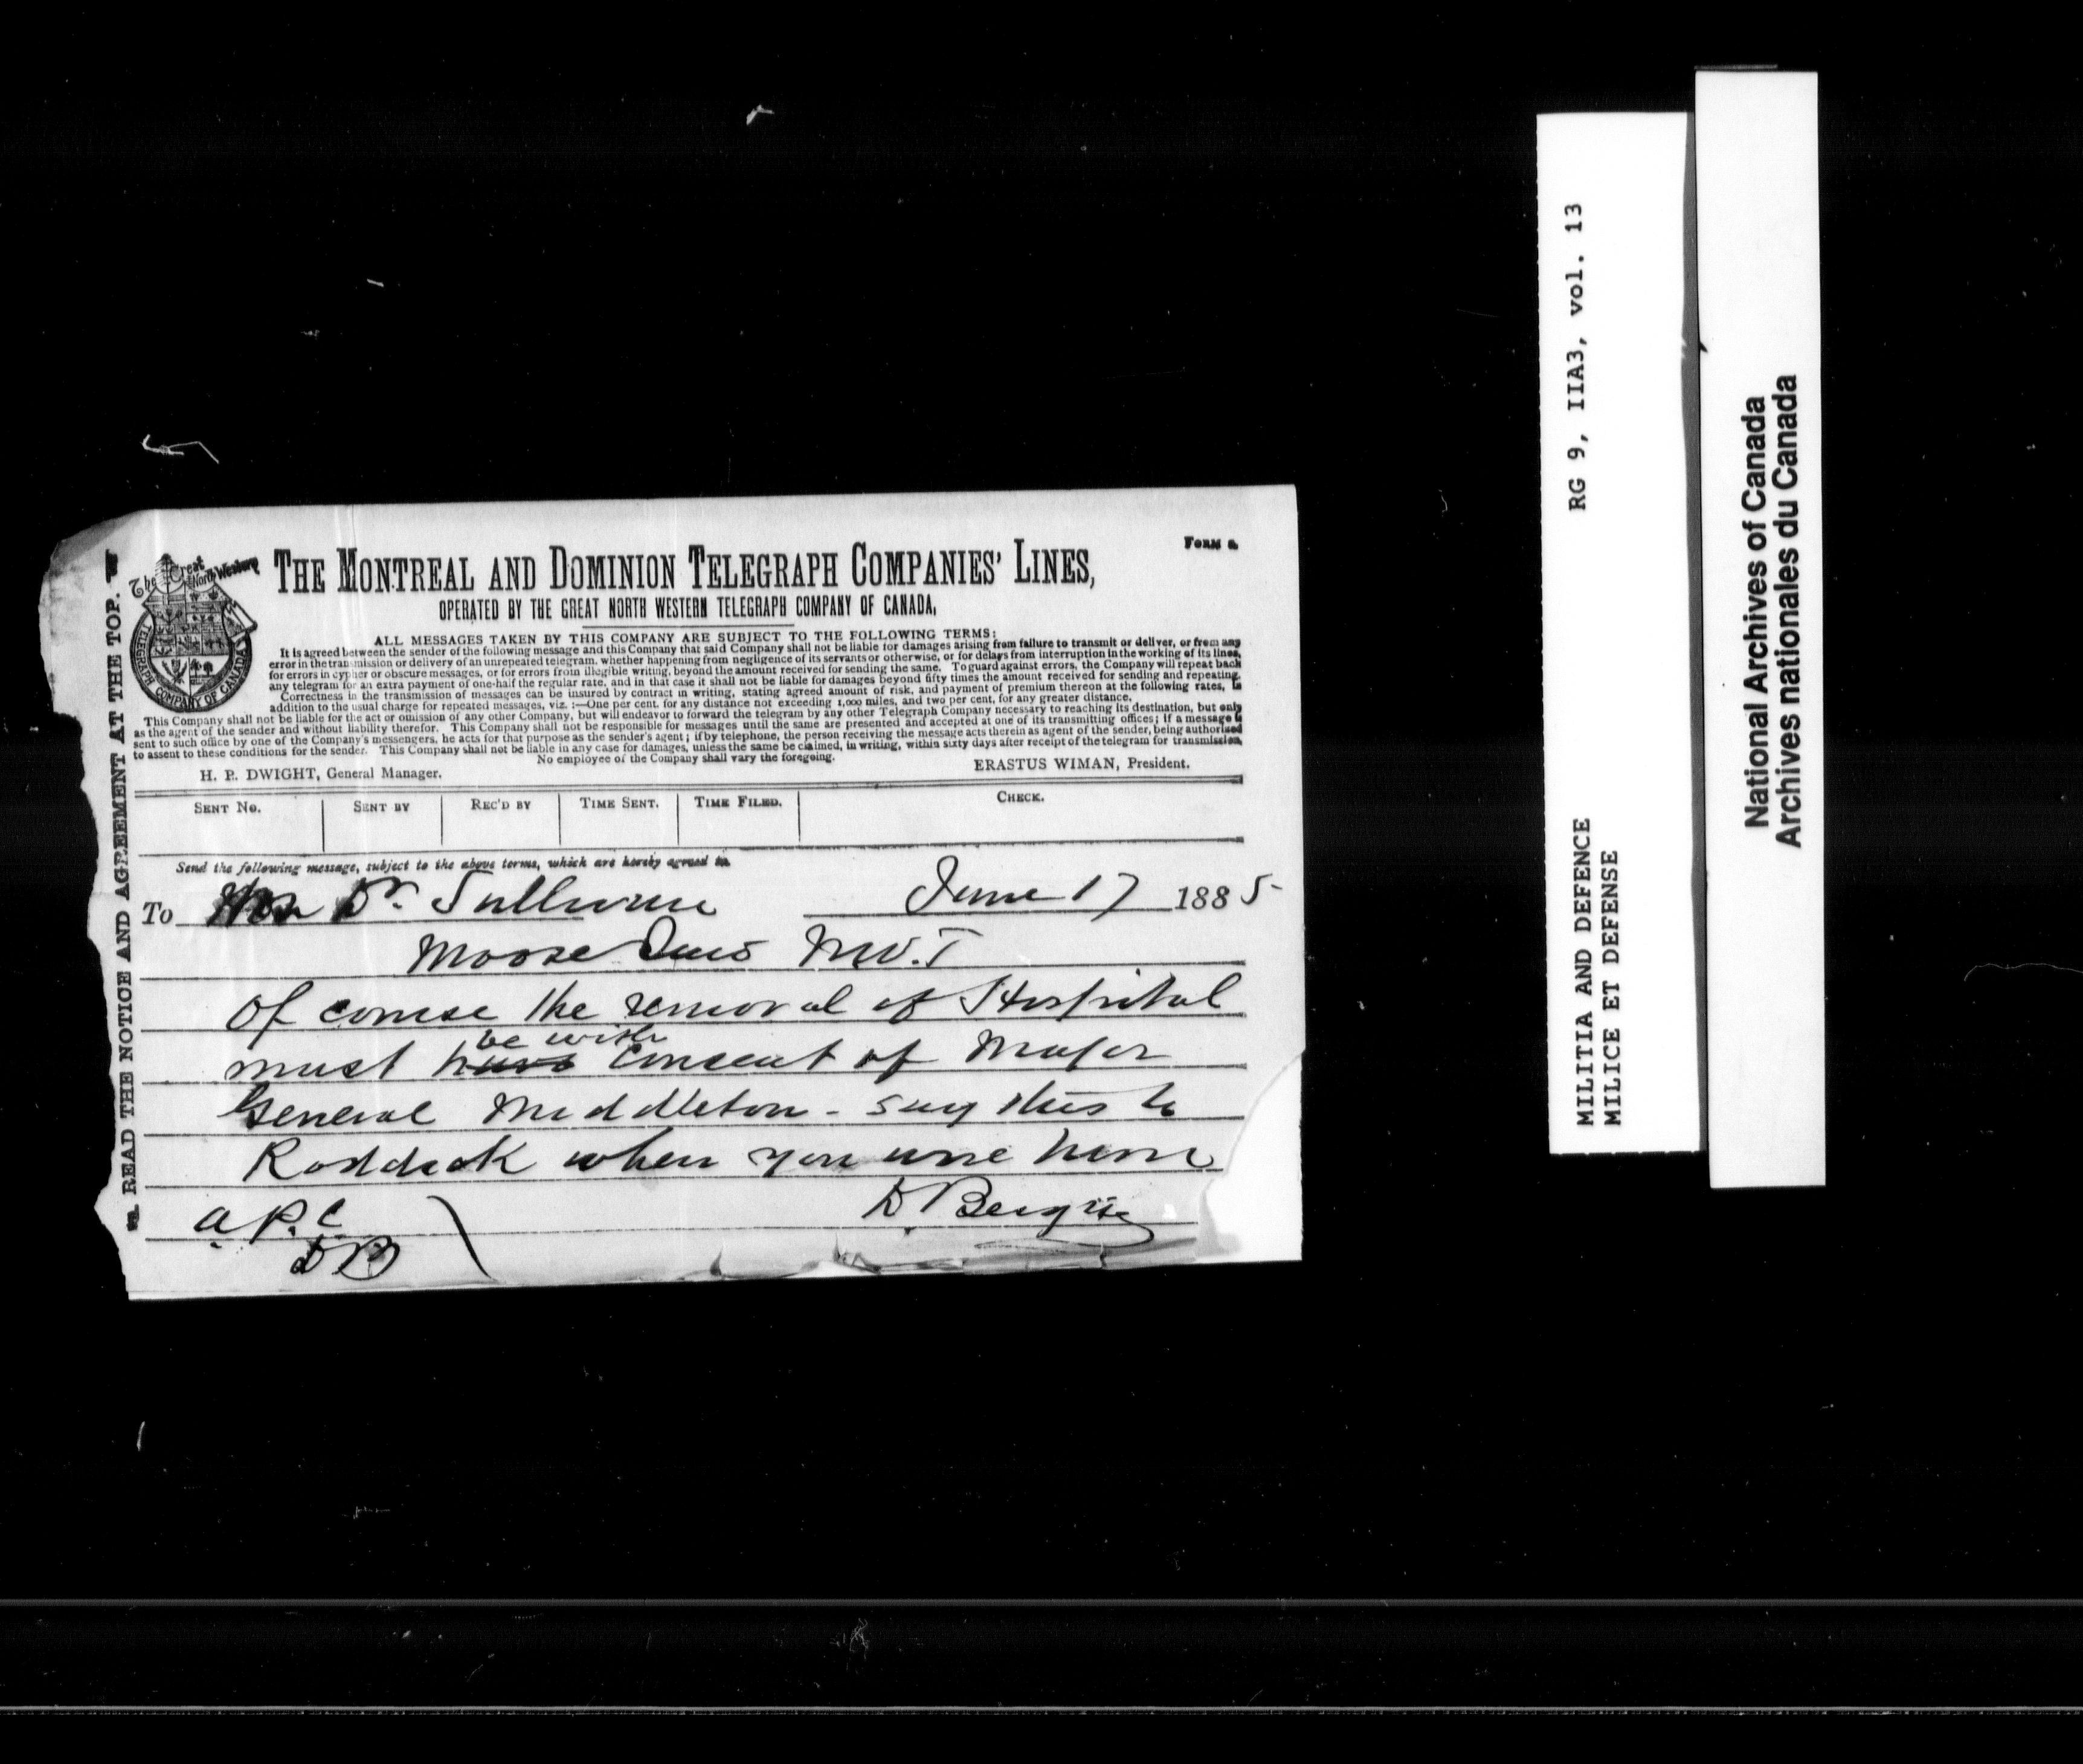 THE MONTREAL AND DOMINION TELEGRAPH COMPANIES' LINES,
FORM 2.
OPERATED BY THE GREAT NORTH WESTERN TELEGRAPH COMPANY OF CANADA.
The Great North Western
TELEGRAPH COMPANY OF CANADA
ALL MESSAGES TAKEN BY THIS COMPANY ARE SUBJECT TO THE FOLLOWING TERMS:
It is agreed between the sender of the following message and this Company that said Company shall not be liable for damages arising from failure to transmit or deliver, or from any
error in the transmission or delivery of an unrepeated telegram, whether happening from negligence of its servants or otherwise, or for delays from interruption in the working of its lines,
for errors in cypher or obscure messages, or for errors from illegible writing, beyond the amount received for sending the same. To guard against errors, the Company will repeat back
any telegram for an extra payment of one-half the regular rate, and in that case it shall not be liable for damages beyond fifty times the amount received for sending and repeating.
Correctness in the transmission of messages can be insured by contract in writing, stating agreed amount of risk, and payment of premium thereon at the following rates, in
addition to the usual charge for repeated messages, viz. :—One per cent. for any distance not exceeding 1,000 miles, and two per cent, for any greater distance.
This Company shall not be liable for the act or omission of any other Company, but will endeavor to forward the telegram by any other Telegraph Company necessary to reaching its destination, but only
as the agent of the sender and without liability therefor. This Company shall not be responsible for messages until the same are presented and accepted at one of its transmitting offices; if a message is
sent to such office by one of the Company's messengers, he acts for that purpose as the sender's agent; if by telephone, the person receiving the message acts therein as agent of the sender, being authorized
to assent to these conditions for the sender. This Company shall not be liable in any case for damages, unless the same be claimed, in writing, within sixty days after receipt of the telegram for transmission.
No employee of the Company shall vary the foregoing.
H. P. DWIGHT, General Manager.
ERASTUS WIMAN, President.
SENT NO. SENT BY REC'D BY TIME SENT. TIME FILED. CHECK.
Send the following message, subject to the above terms, which are hereby agreed to.
To Hon Dr. Sullivan June 17 1885
Moose Jaw N.W.T
Of course the removal of Hospital
be with
must have consent of Major
General Middleton - say this to
Roddick when you wire him
D Bergin
a P. C
DB
READ THE NOTICE AND AGREEMENT AT THE TOP.
MILITIA AND DEFENCE RG 9, IIA3, vol. 13
MILICE ET DEFENSE
National Archives of Canada
Archives nationales du Canada